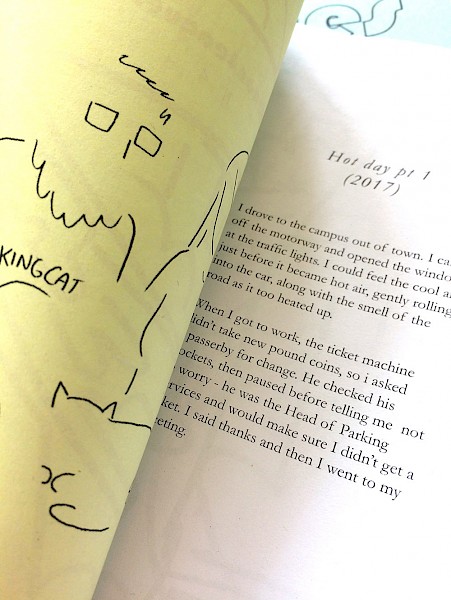 KINGCAT
Hot day pt 1
(2017)
I drove to the campus out of town. I
off the motorway and opened the
at the traffic lights. I could feel the cool
just before it became hot air, gently rolling
into the car, along with the smell of the
road as it too heated up.
When I got to work, the ticket machine
didn't take new pound coins, so i asked
passerby for change. He checked his
pockets, then paused before telling me not
worry - he was the Head of Parking
and would make sure I didn't get a
I said thanks and then I went to my